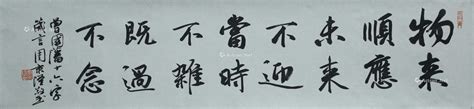 物来
順應
未来
不迎
當時
不雜
既過
不念
曾國藩十六字
箴言